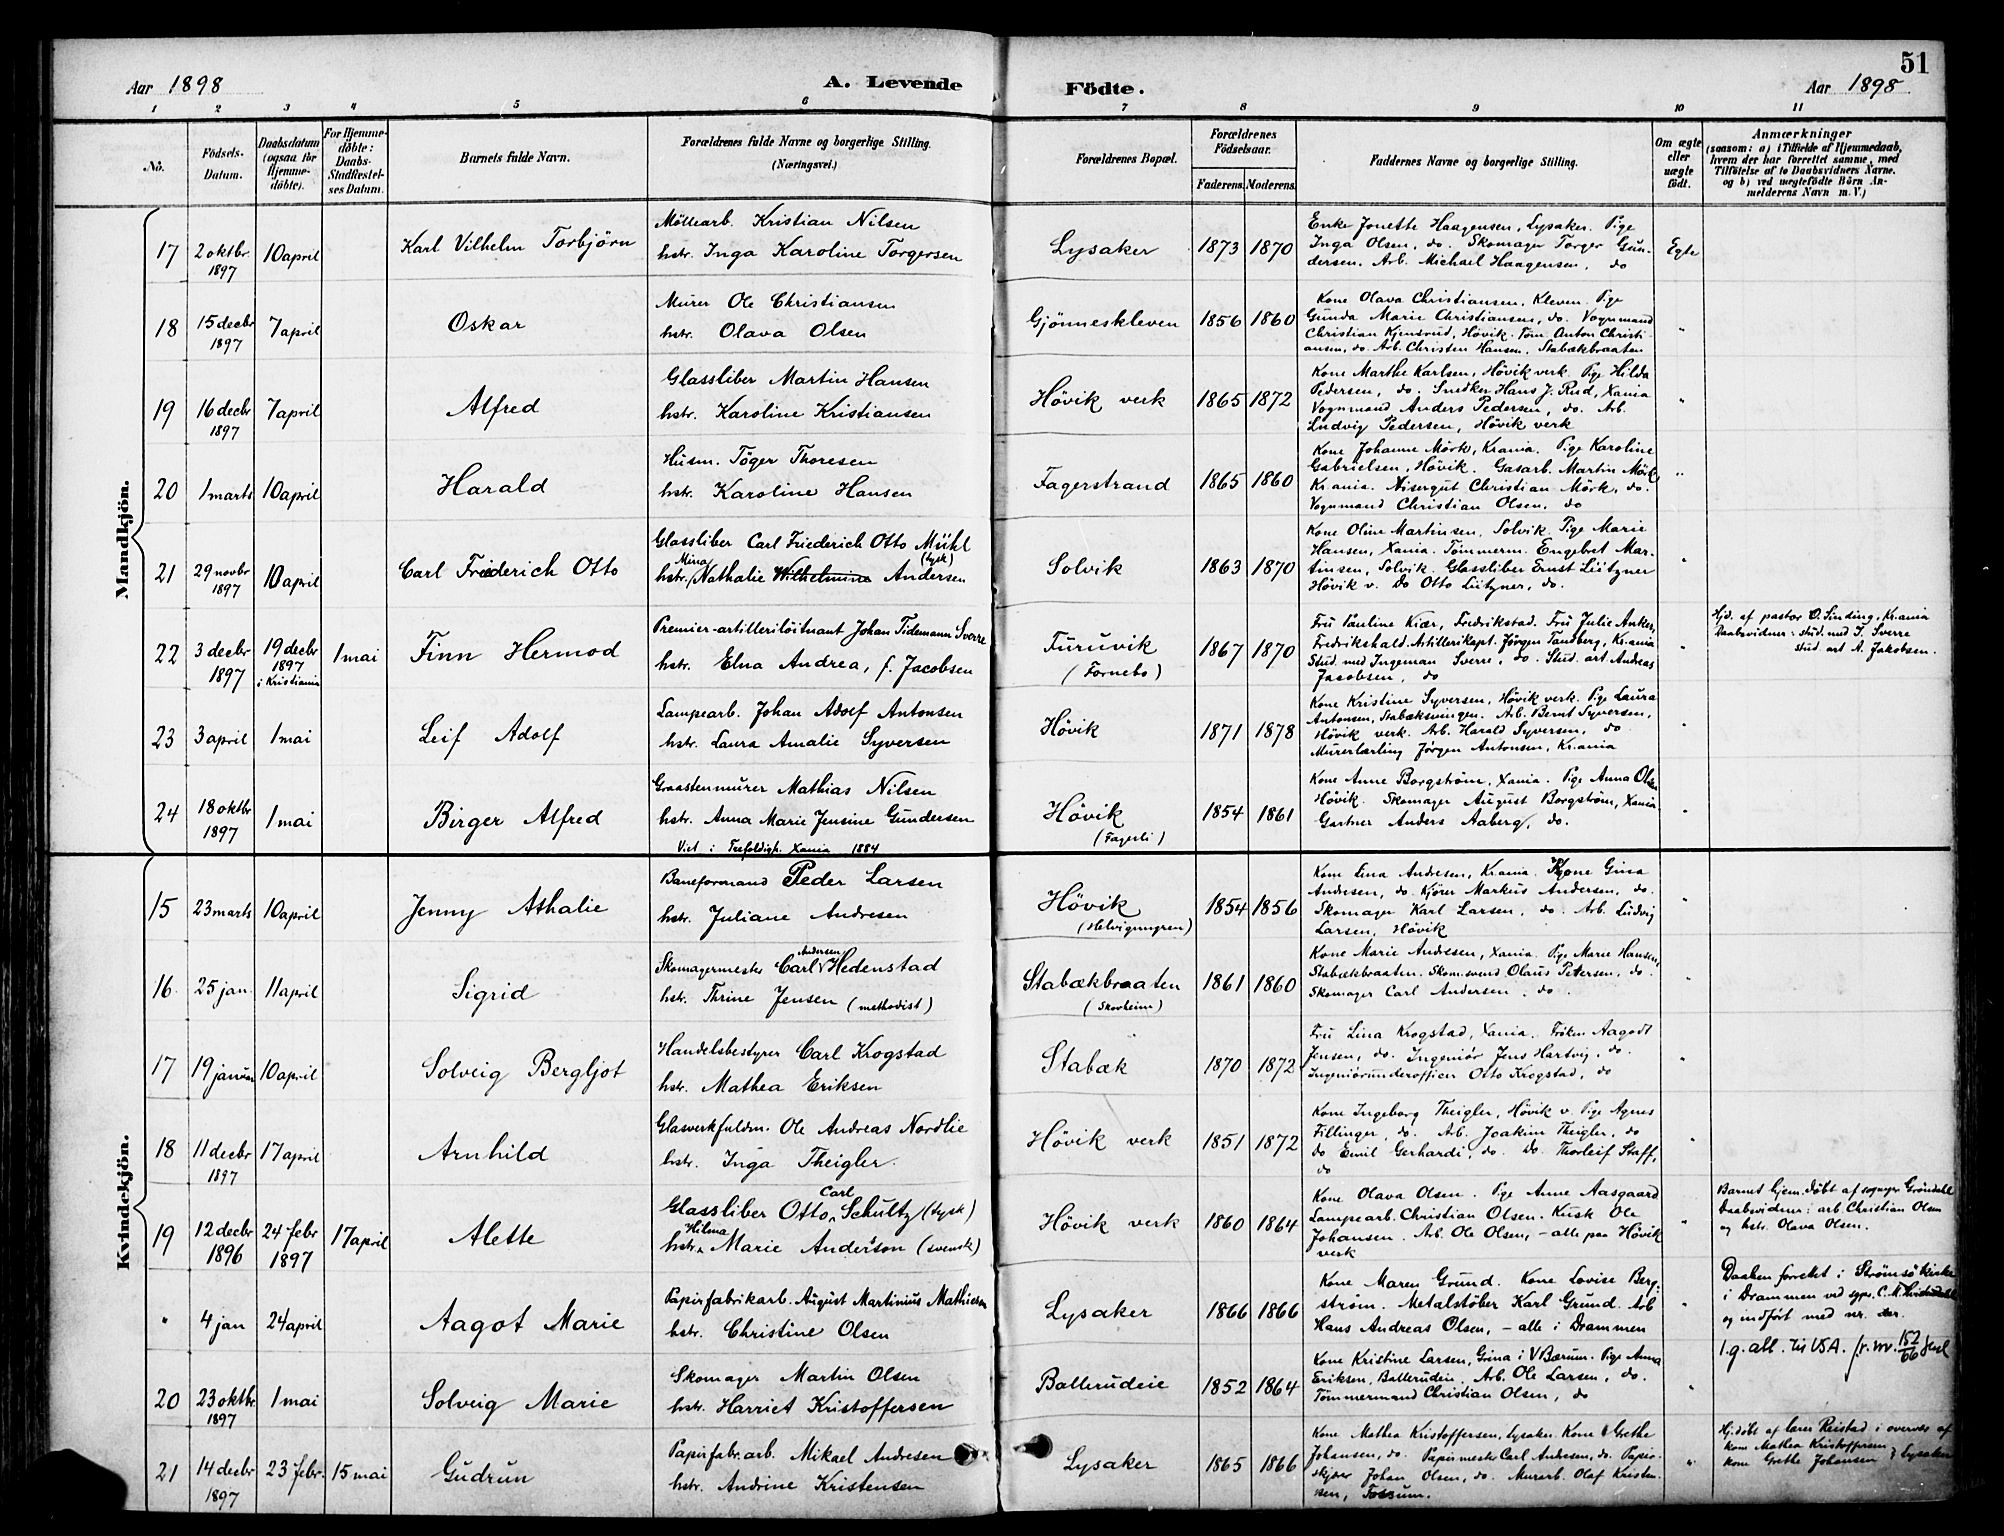 51
Aar 1898
A. Levende
Födte.
Aar 1898
1 2 3 4 5 6 7 8 9 10 11
No.
Födsels-
Datum.
Daabsdatum
(ogsaa for
Hjemme-
döbte).
For Hjemme-
döbte:
Daabs-
Stadfæstel-
ses Datum.
Barnets fulde Navn.
Forældrenes fulde Navne og borgerlige Stilling.
(Næringsvei.)
Forældrenes Bopæl.
Forældrenes
Födselsaar.
Faderens. Moderens.
Faddernes Navne og borgerlige Stilling.
Om ægte
eller
uægte
födt.
Anmærkninger
(saasom: a) i Tilfælde af Hjemmedaab,
hvem der har forrettet samme, med
Tilföielse af to Daabsvidners Navne.
og b) ved uægtefödte Börn An-
melderens Navn m. V.)
Mandkjön.
17 2 oktbr. 1897 10 april Karl Vilhelm Torbjörn
Möllearb. Kristian Nilsen
hstr. Inga Karoline Torgersen
Lysaker 1873 1870
Enke Jonette Haagensen, Lysaker. Pige
Inga Olsen, do. Skomager Torger Gun-
dersen. Arb. Michael Haagensen, do
Egte
18 15 decbr 1897 7 april Oskar
Murer Ole Christiansen
hstr. Olava Olsen
Gjönneskleven 1856 1860
Kone Olava Christiansen, Kleven. Pige
Gunda Marie Christiansen, do. Vognmand
Christian Kjensrud, Hövik. Töm. Anton Christi-
ansen, do. Arb. Christen Hansen, Stabækbraaten
"
19 16 decbr 1897 7 april Alfred
Glassliber Martin Hansen
hstr. Karoline Kristiansen
Hövik verk 1865 1872
Kone Marthe Karlsen, Hövik verk. Pige Hilda
Pedersen, do. Snedker Hans J. Rud, Xania
Vognmand Anders Pedersen, do. Arb.
Ludvig Pedersen, Hövik verk
"
20 1 marts 10 april Harald
Husm. Töger Thoresen
hstr. Karoline Hansen
Fagerstrand 1865 1860
Kone Johanne Mörk, Krania. Pige Karoline
Gabrielsen, Hövik. Gasarb. Martin Mörk,
Krania. Visergut Christian Mörk, do.
Vognmand Christian Olsen, do
"
21 29 novbr 1897 10 april Carl Friederich Otto
Glassliber Carl Friederich Otto Mühl
(tysk)
Mina
hstr. Nathalie Wilhelmine Andersen
Solvik 1863 1870
Kone Oline Martinsen, Solvik. Pige Marie
Hansen, Xania. Tömmerm. Engebret Mar-
tinsen, Solvik. Glassliber Ernst Lützner
Hövik v. Do Otto Lützner, do.
"
22 3 decbr 1897 19 decbr 1897 i Kristiania 1 mai Finn Hermod
Premier-artilleriløitnant Johan Tidemann Sverre
hstr. Elna Andrea, f. Jacobsen
Furuvik
(Fornebo)
1867 1870
Fru Pauline Kiær, Fredrikstad. Fru Julie Anker,
Fredrikshald. Artillerikapt. Jörgen Tandberg, Krania
Stud. med Ingeman Sverre, do. Stud. art. Andreas
Jacobsen, do
"
Hjd. af pastor O. Sinding, Krania
Daabsvidner: stud. med J. Sverre
stud. art A. Jakobsen.
23 3 april 1 mai Leif Adolf
Lampearb. Johan Adolf Antonsen
hstr. Laura Amalie Syversen
Hövik 1871 1878
Kone Kristine Syversen, Hövik verk. Pige Laura
Antonsen, Stabæksvingen. Arb. Bernt Syversen,
Hövik verk. Arb. Harald Syversen, do.
Murerlærling Jörgen Antonsen, Krania
"
24 18 oktbr 1897 1 mai Birger Alfred
Graastenmurer Mathias Nilsen
hstr. Anna Marie Jensine Gundersen
Viet i Trefoldigh. Xania 1884
Hövik
(Fagerli)
1854 1861
Kone Anne Borgström, Xania. Pige Anna Olsen
Hövik. Skomager August Borgström, Xania
Gartner Anders Aaberg, do.
"
Kvindekjön.
15 23 marts 10 april Jenny Athalie
Baneformand Peder Larsen
hstr. Juliane Andresen
Hövik
1854 1856
Kone Lina Andresen, Krania. Kone Gina
Andresen, do. Kjörer Markus Andersen, do.
Skomager Karl Larsen, do. Arb. Ludvig
Larsen, Hövik
"
16. 25 jan. 11 april Sigrid
Andersen
Skomagermester Carl Hedenstad
hstr. Thrine Jensen (methodist)
Stabækbraaten
(Skovheim)
1861 1860
Kone Marie Andresen, Xania. Pige Marie Hansen,
Stabækbraaten. Skom.svend Olaus Petersen, do.
Skomager Carl Andersen, do.
"
17 19 januar 10 april Solveig Bergljot
Handelsbestyrer Carl Krogstad
hstr. Mathea Eriksen
Stabæk 1870 1872
Fru Lina Krogstad, Xania. Fröken Aagodt
Jensen, do. Ingeniör Jens Hartvig, do.
Ingeniörunderofficer Otto Krogstad, do
"
18 11 decbr 1897 17 april Arnhild
Glasverkfuldm. Ole Andreas Nordlie
hstr. Inga Theigler.
Hövik verk 1851 1872
Kone Ingeborg Theigler, Hövik v. Pige Agnes
Fillinger, do. Arb. Joakim Theigler, do
do Emil Gerhardi, do. Do. Thorleif Staff,
do
"
19 12 decbr 1896 24 febr 1897 17 april Alette
Carl
Glassliber Otto Schultz (tysk)
Hilma
hstr. Marie Anderson (svensk)
Hövik verk 1860 1864
Kone Olava Olsen. Pige Anne Aasgaard
Lampearb. Christian Olsen. Kusk Ole
Johansen. Arb. Ole Olsen, - alle paa Hövik
verk
"
Barnet hjem.döbt af sognepr. Gröndahl
Daabsvidner: arb Christian Olsen
og hstr. Olava Olsen.
" 4 jan 24 april Aagot Marie
Papirfabrikarb. August Martinius Mathiesen
hstr. Christine Olsen
Lysaker 1866 1866
Kone Maren Grund. Kone Lovise Berg-
ström. Metalstöber Karl Grund. Arb
Hans Andreas Olsen, - alle i Drammen
"
Daaben forrettet i Strömsö kirke
i Drammen ved
og indfört med nr. der.
20 23 oktbr. 1897 1 mai Solveig Marie
Skomager Martin Olsen
hstr. Harriet Kristoffersen
Ballerudeie 1852 1864
Kone Kristine Larsen, Grina i V Bærum. Pige Anna
Eriksen, Ballerudeie. Arb. Ole Larsen, do.
Tömmermand Christian Olsen, do
"
1.g. att. til USA.
21 14 decbr 1897 23 febr. 15 mai Gudrun
Papirfabr.arb. Mikael Andresen
hstr. Andrine Kristensen
Lysaker 1865 1866
Kone Mathea Kristoffersen, Lysaker. Kone Grethe
Johansen, do. Papirmester Carl Andresen, do. Papir-
skjærer Johan Olsen, do. Murarb. Olaf Kristen-
sen, Fossum.
"
Hj.döbt af lærer Reistad i overvær af
kone Mathea Kristoffersen
kone Grethe Johansen } Lysaker